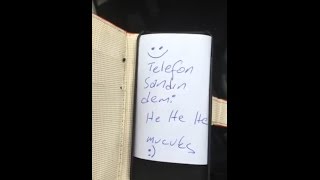 Telefon
sandın
demi
He He He
mucuks
:)